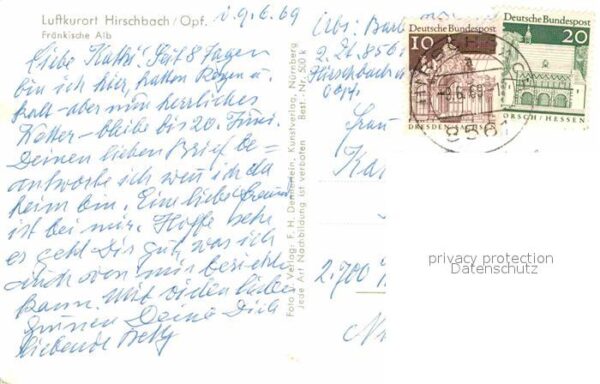 Luftkurort Hirschbach/Opf.
Fränkische Alb
9.6.69
Liebe Kathi! Seit 8 Tagen
bin ich hier, hatten Regen u.
kalt - aber nun herrliches
Wetter - bleibe bis 20. Juni.
Deinen lieben Brief be-
antworte ich wenn ich da
heim bin. Eine liebe Freundin
ist bei mir. Hoffe sehr
es geht Dir gut, was ich
auch von mir berichten
kann. Mit vielen lieben
Grüssen Deine Dich
liebende Betty
Foto u. Verlag: F. H. Dennerlein, Kunstverlag, Nürnberg
Jede Art Nachbildung ist verboten Best.-Nr. 500 k
2. Zt. 8561
Hirschbach
Frau
2.700
Deutsche Bundespost
10
DRESDEN/SACHSEN
Deutsche Bundespost
20
LORSCH/HESSEN
8561
privacy protection
Datenschutz